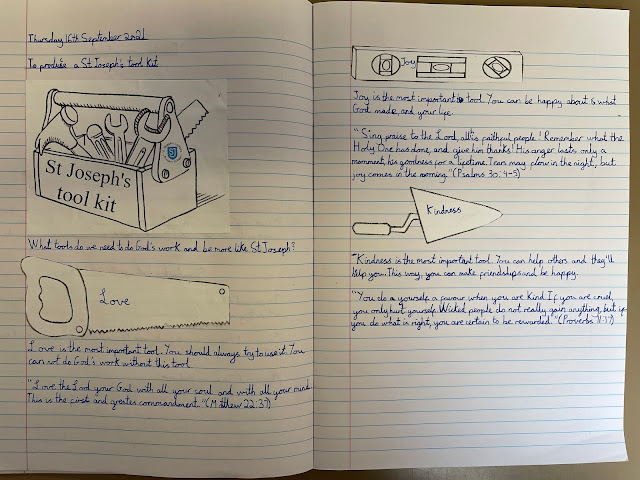 Thursday 16th September 2021
To produce a St Joseph's tool kit
St Joseph's
tool kit
What tools do we need to do God's work and be more like St Joseph?
Love
Love is the most important tool. You should always try to use it. You
can not do God's work without this tool.
"Love the Lord your God with all your soul and with all your mind.
This is the first and greates commandment." (Matthew 22:37)
Joy
Joy is the most important tool. You can be happy about what
God made, and your life.
"Sing praise to the Lord, all his faithful people! Remember what the
Holy One has done, and give him thanks! His anger lasts only a
momment, his goodness for a lifetime. Tears may flow in the night, but
joy comes in the morning." (Psalms 30:4-5)
Kindness
"Kindness is the most important tool. You can help others and they'll
help you. This way, you can make friendships and be happy.
"You do a yourself a favour when you are kind. If you are cruel,
you only hurt yourself. Wicked people do not really gain anything, but if
you do what is right, you are certain to be rewarded." (Proverbs 11:17)